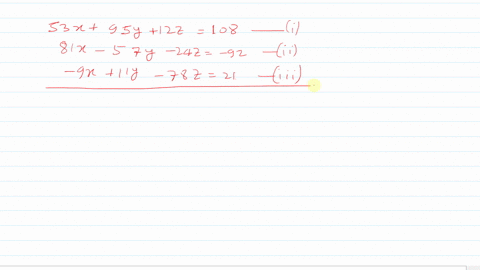 53x + 95y + 12z = 108 —(i)
81x - 57y - 24z = -92 —(ii)
-9x + 11y - 78z = 21 —(iii)